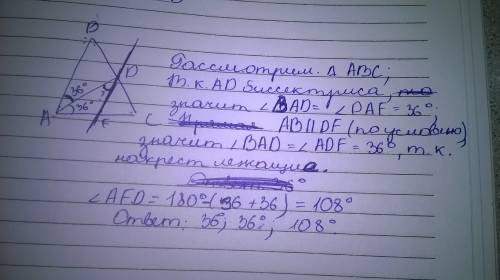 B
36°
36°
D
A
F
C
Рассмотрим △ ABC;
т.к. AD биссектриса,
значит ∠BAD = ∠DAF = 36°;
AB||DF (по условию)
значит ∠BAD = ∠ADF = 36°, т.к.
накрест лежащие.
Ответ: 36°
∠AFD = 180°-(36+36) = 108°
Ответ: 36°, 36°, 108°